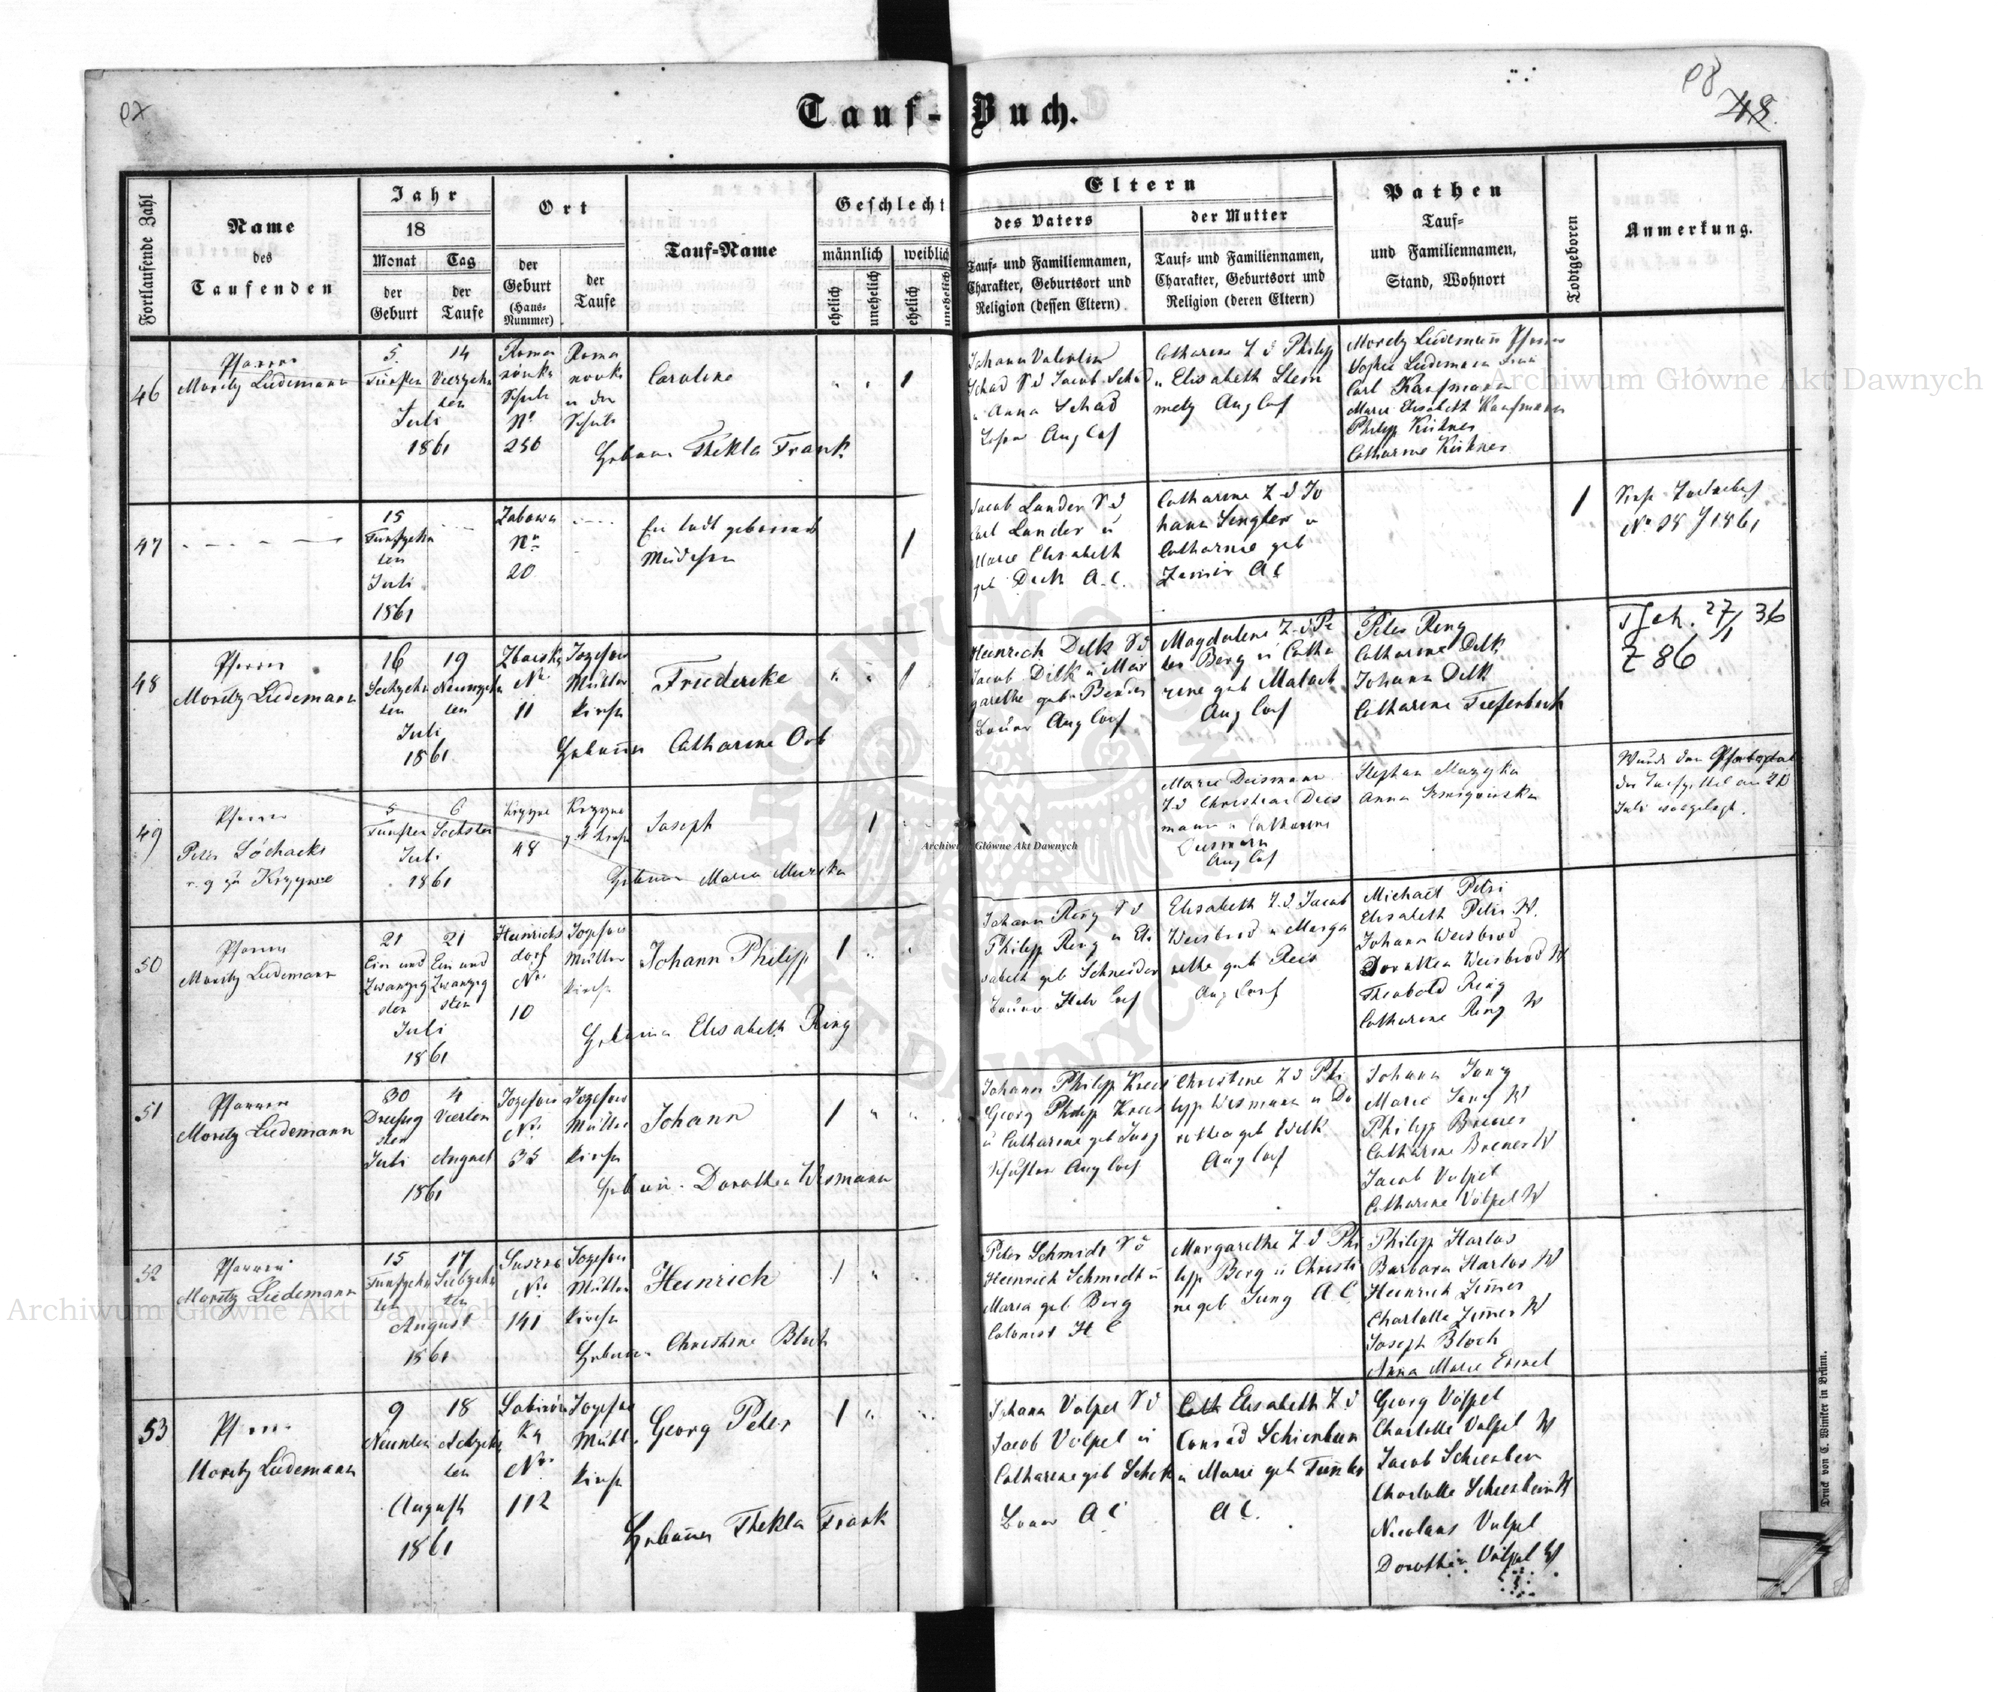 Tauf-Buch.
08
Fortlaufende Zahl
Name
des
Taufenden
Jahr
18
Monat
der
Geburt
Tag
der
Taufe
Ort
der
Geburt
(Haus-
Nummer)
der
Taufe
Tauf-Name
Geschlecht
männlich
weiblich
ehelich
unehelich
ehelich
unehelich
Eltern
des Vaters
Tauf- und Familiennamen,
Charakter, Geburtsort und
Religion (dessen Eltern)
der Mutter
Tauf- und Familiennamen,
Charakter, Geburtsort und
Religion (deren Eltern)
Pathen
Tauf-
und Familiennamen,
Stand, Wohnort
Todtgeboren
Anmerkung.
46
Pfarrer
Moritz Lüdemann
5.
Fünften
14
Vierzehn
ten
Juli
1861
Schule
No
256
Schule
Caroline
1
Hebamme Thekla Frank
Johann Valentin
Schad S d Jacob Schad
u Anna Schad
Aug Conf
Catharine T d Philipp
u Elisabeth Stein
metz Aug Conf
Moritz Lüdemann Pfarrer
Sophie Lüdemann
Carl Kaufmann
Marie Elisabeth Kaufmann
Philipp Kirkner
Catharine Kirkner
47
15
Fünfzehn
ten
Juli
1861
Zabawa
No
20
Ein todt geborenes
Mädchen
1
Jacob Lander S d
Carl Lander u
Marie Elisabeth
geb Deck A. C.
Catharine T d Jo
hann Sengler u
Catharine geb
A C
1
No 28 / 1861
48
Pfarrer
Moritz Lüdemann
16
Sechzehn
ten
19
Neunzehn
ten
Juli
1861
No
11
Jozefow
Mutter
kirche
Friedericke
1
Hebamme Catharine Orb
Heinrich Delk S d
Jacob Delk u Mar
garethe geb Bender
Bauer Aug Conf
Magdalene T d Pe
ter Berg u Catha
rine geb
Aug Conf
Peter Ring
Catharine Delk
Johann Delk
Catharine Tiefenbach
27/1 36
Z 86
49
Pfarrer
Peter
5
Fünften
6
Sechsten
Juli
1861
48
Joseph
1
Hebamme Maria
Marie Diesmann
T d Christian Dies
mann u Catharine
Diesmann
Aug Conf
Stephan Muzyka
Anna
50
Pfarrer
Moritz Lüdemann
21
Ein und
Zwanzig
sten
21
Ein und
Zwanzig
sten
Juli
1861
Heinrichs
dorf
No
10
Jozefow
Mutter
kirche
Johann Philipp
1
Hebamme Elisabeth Ring
Johann Ring S d
Philipp Ring u Eli
sabeth geb Schneider
Bauer Helv Conf
Elisabeth T d Jacob
Weisbrod u Marga
rethe geb Reis
Aug Conf
Michael Petri
Elisabeth Petri W.
Johann Weisbrod
Dorothea Weisbrod W
Theobald Ring
Catharine Ring W
51
Pfarrer
Moritz Lüdemann
30
Dreißig
sten
Juli
4
Vierten
August
1861
Jozefow
No
35
Jozefow
Mutter
kirche
Johann
1
Hebamme Dorothea Wismann
Johann Philipp Kreis
Georg Philipp Kreis
u Catharine geb Jung
Aug Conf
Christine T d Phi
lipp Wismann u Do
rothea geb Welk
Aug Conf
Johann Jung
Marie Jung W
Philipp Brener
Catharine Brener W
Jacob Volpel
Catharine Volpel W
52
Pfarrer
Moritz Lüdemann
15
Fünfzehn
ten
17
Siebzehn
ten
August
1861
No
141
Jozefow
Mutter
kirche
Heinrich
1
Hebamme Christine Bloch
Peter Schmidt S d
Heinrich Schmidt u
Maria geb Berg
Colonist H C
Margarethe T d Phi
lipp Berg u Christi
ne geb Jung A C
Philipp Harlos
Barbara Harlos W
Heinrich Zimer
Charlotte Zimer W
Joseph Bloch
Anna Marie
53
Pfarrer
Moritz Lüdemann
9
Neunten
18
Achtzehn
ten
August
1861
No
112
Jozefow
Mutt.
kirche
Georg Peter
1
Hebamme Thekla Frank
Johann Volpel S d
Jacob Volpel u
Catharine geb Schek
Bauer A C
Cath Elisabeth T d
Conrad Schienbein
u Marie geb
A C.
Georg Volpel
Charlotte Volpel W
Jacob Schienbein
Charlotte Schienbein W
Nicolaus Volpel
Dorothea Volpel W.
Druck von C. Winiker in Brünn.
Archiwum Główne Akt Dawnych
Archiwum Główne Akt Dawnych
Archiwum Główne Akt Dawnych